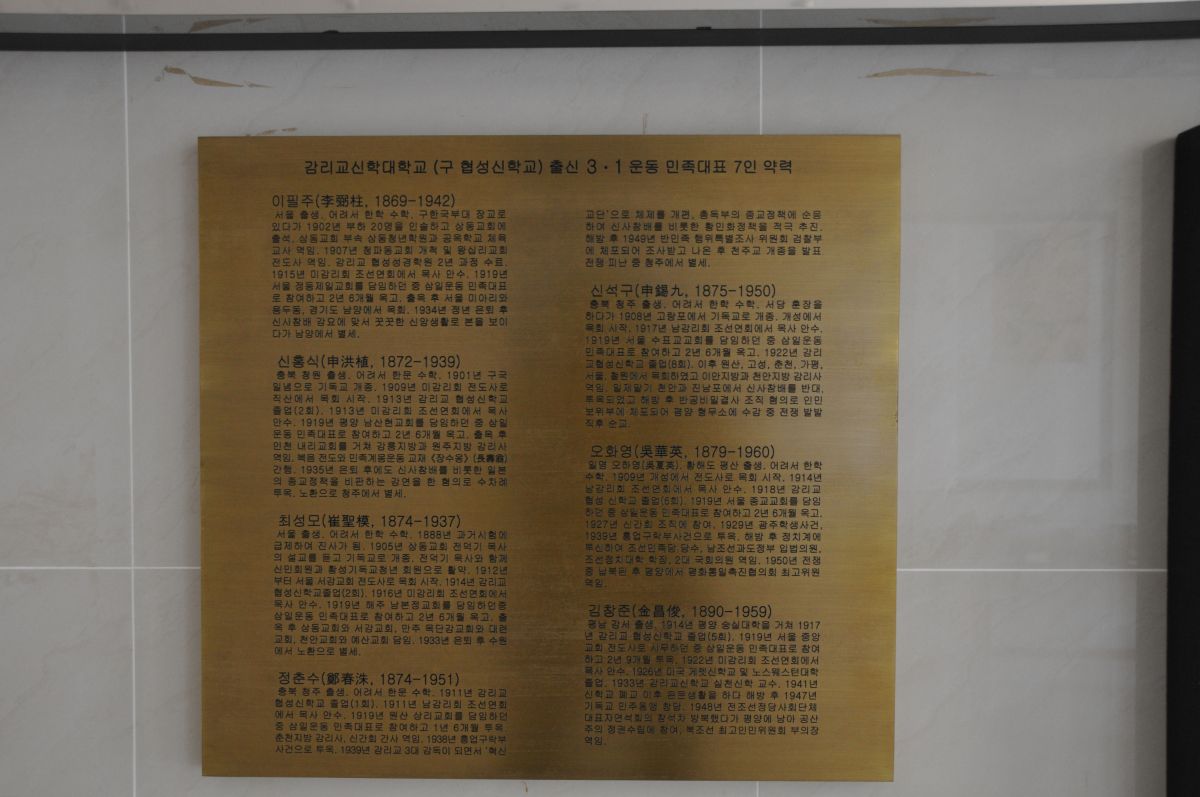 감리교신학대학교 (구 협성신학교) 출신 3·1 운동 민족대표 7인 약력
이필주(李弼柱, 1869-1942)
서울 출생. 어려서 한학 수학. 구한국부대 장교로
있다가 1902년 부하 20명을 인솔하고 상동교회에
출석. 상동교회 부속 상동청년학원과 공옥학교 체육
교사 역임. 1907년 청파동교회 개척 및 왕십리교회
전도사 역임. 감리교 협성성경학원 2년 과정 수료.
1915년 미감리회 조선연회에서 목사 안수. 1919년
서울 정동제일교회를 담임하던 중 삼일운동 민족대표
로 참여하고 2년 6개월 옥고. 출옥 후 서울 미아리와
용두동, 경기도 남양에서 목회. 1934년 정년 은퇴 후
신사참배 강요에 맞서 꿋꿋한 신앙생활로 본을 보이
다가 남양에서 별세.
신홍식(申洪植, 1872-1939)
충북 청원 출생. 어려서 한문 수학. 1901년 구국
일념으로 기독교 개종. 1909년 미감리회 전도사로
직산에서 목회 시작. 1913년 감리교 협성신학교
졸업(2회). 1913년 미감리회 조선연회에서 목사
안수. 1919년 평양 남산현교회를 담임하던 중 삼일
운동 민족대표로 참여하고 2년 6개월 옥고. 출옥 후
인천 내리교회를 거쳐 강릉지방과 원주지방 감리사
역임. 복음 전도와 민족계몽운동 교재 《장수옹》(長壽翁)
간행. 1935년 은퇴 후에도 신사참배를 비롯한 일본
의 종교정책을 비판하는 강연을 한 혐의로 수차례
투옥. 노환으로 청주에서 별세.
최성모(崔聖模, 1874-1937)
서울 출생. 어려서 한학 수학. 1888년 과거시험에
급제하여 진사가 됨. 1905년 상동교회 전덕기 목사
의 설교를 듣고 기독교로 개종. 전덕기 목사와 함께
신민회원과 황성기독교청년 회원으로 활약. 1912년
부터 서울 서강교회 전도사로 목회 시작. 1914년 감리교
협성신학교졸업(2회). 1916년 미감리회 조선연회에서
목사 안수. 1919년 해주 남본정교회를 담임하던중
삼일운동 민족대표로 참여하고 2년 6개월 옥고. 출
옥 후 상동교회와 서강교회, 만주 목단강교회와 대련
교회, 천안교회와 예산교회 담임. 1933년 은퇴 후 수원
에서 노환으로 별세.
정춘수(鄭春洙, 1874-1951)
충북 청주 출생. 어려서 한문 수학. 1911년 감리교
협성신학교 졸업(1회). 1911년 남감리회 조선연회
에서 목사 안수. 1919년 원산 상리교회를 담임하던
중 삼일운동 민족대표로 참여하고 1년 6개월 투옥.
춘천지방 감리사, 신간회 간사 역임. 1938년 흥업구락부
사건으로 투옥. 1939년 감리교 3대 감독이 되면서 '혁신
교단'으로 체제를 개편, 총독부의 종교정책에 순응
하여 신사참배를 비롯한 황민화정책을 적극 추진.
해방 후 1949년 반민족 행위특별조사 위원회 검찰부
에 체포되어 조사받고 나온 후 천주교 개종을 발표.
전쟁 피난 중 청주에서 별세.
신석구(申錫九, 1875-1950)
충북 청주 출생. 어려서 한학 수학. 서당 훈장을
하다가 1908년 고랑포에서 기독교로 개종. 개성에서
목회 시작. 1917년 남감리회 조선연회에서 목사 안수.
1919년 서울 수표교교회를 담임하던 중 삼일운동
민족대표로 참여하고 2년 6개월 옥고. 1922년 감리
교협성신학교 졸업(8회). 이후 원산, 고성, 춘천, 가평,
서울, 철원에서 목회하였고 이안지방과 천안지방 감리사
역임. 일제말기 천안과 진남포에서 신사참배를 반대,
투옥되었고 해방 후 반공비밀결사 조직 혐의로 인민
보위부에 체포되어 평양 형무소에 수감 중 전쟁 발발
직후 순교.
오화영(吳華英, 1879-1960)
일명 오하영(吳夏英). 황해도 평산 출생. 어려서 한학
수학. 1909년 개성에서 전도사로 목회 시작. 1914년
남감리회 조선연회에서 목사 안수. 1918년 감리교
협성 신학교 졸업(6회). 1919년 서울 종교교회를 담임
하던 중 삼일운동 민족대표로 참여하고 2년 6개월 옥고.
1927년 신간회 조직에 참여, 1929년 광주학생사건,
1939년 흥업구락부사건으로 투옥. 해방 후 정치계에
투신하여 조선민족당 당수, 남조선과도정부 입법의원,
조선정치대학 학장, 2대 국회의원 역임. 1950년 전쟁
중 납북된 후 평양에서 평화통일촉진협의회 최고위원
역임.
김창준(金昌俊, 1890-1959)
평남 강서 출생. 1914년 평양 숭실대학을 거쳐 1917
년 감리교 협성신학교 졸업(5회). 1919년 서울 중앙
교회 전도사로 시무하던 중 삼일운동 민족대표로 참여
하고 2년 9개월 투옥. 1922년 미감리회 조선연회에서
목사 안수. 1926년 미국 게렛신학교 및 노스웨스턴대학
졸업. 1933년 감리교신학교 실천신학 교수. 1941년
신학교 폐교 이후 은둔생활을 하다 해방 후 1947년
기독교 민주동맹 창당. 1948년 전조선정당사회단체
대표자연석회의 참석차 방북했다가 평양에 남아 공산
주의 정권수립에 참여, 북조선 최고인민위원회 부의장
역임.